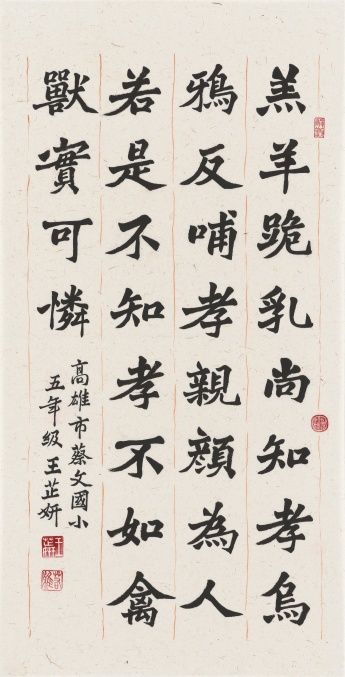 羔羊跪乳尚知孝烏
鴉反哺孝親顏為人
若是不知孝不如禽
獸實可憐
高雄市蔡文國小
五年級王芷妍